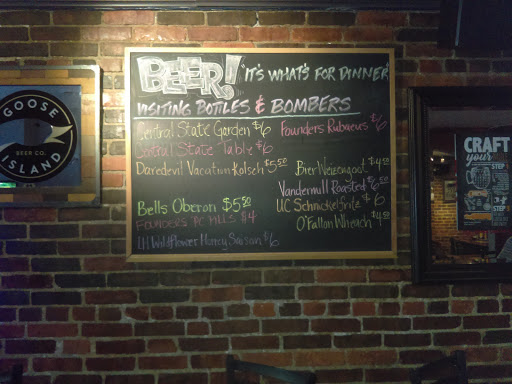 BEER! "IT'S WHAT'S FOR DINNER"
VISITING BOTTLES & BOMBERS
Central State Garden $6
Founders Rubaeus $6
Central State Table $6
Daredevil Vacation Kolsch $5.50
Bier Weizengoot $4.50
Vandermill Roasted $6.50
Bells Oberon $5.50
UC Schnickelfritz $6
FOUNDERS PC PILLS $4
O'Fallon Wheach $4.50
Wildflower Honey Saison $6
GOOSE
BEER CO.
ISLAND
CRAFT
your
STEP